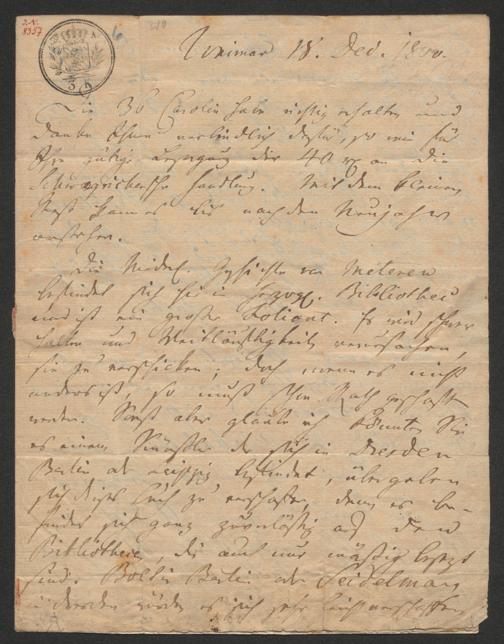 2.N.
8357
Weimar 18. Dec. 1800.
Die 36 Carolin habe richtig erhalten und
danke Ihnen verbindlich dafür, so wie für
Ihre gütige Besorgung der 40 an die
Handlung. Mit dem kleinen
Rest kann es bis nach dem Neujahr
anstehen.
Die Niederl. Geschichte von Meteren
befindet sich hie in Herzogl. Bibliothek
und ist ein großer Foliant. Es wird schwer
halten und Weitläuftigkeit verursachen,
sie zu verschicken; doch wenn es nicht
anders ist, so muß schon Rath geschafft
werden. Sonst aber glaube ich könnten Sie
es einem Künstler der sich in Dresden
Berlin od Leipzig befindet, übergeben
sich dieses Buch zu verschaffen, denn es be-
findet sich ganz zuverlässig auf den
Bibliotheken, die auch nur mäßig besezt
sind. Bolt in Berlin oder Seidelmann
in Dresden würden es sich sehr leicht verschaffen